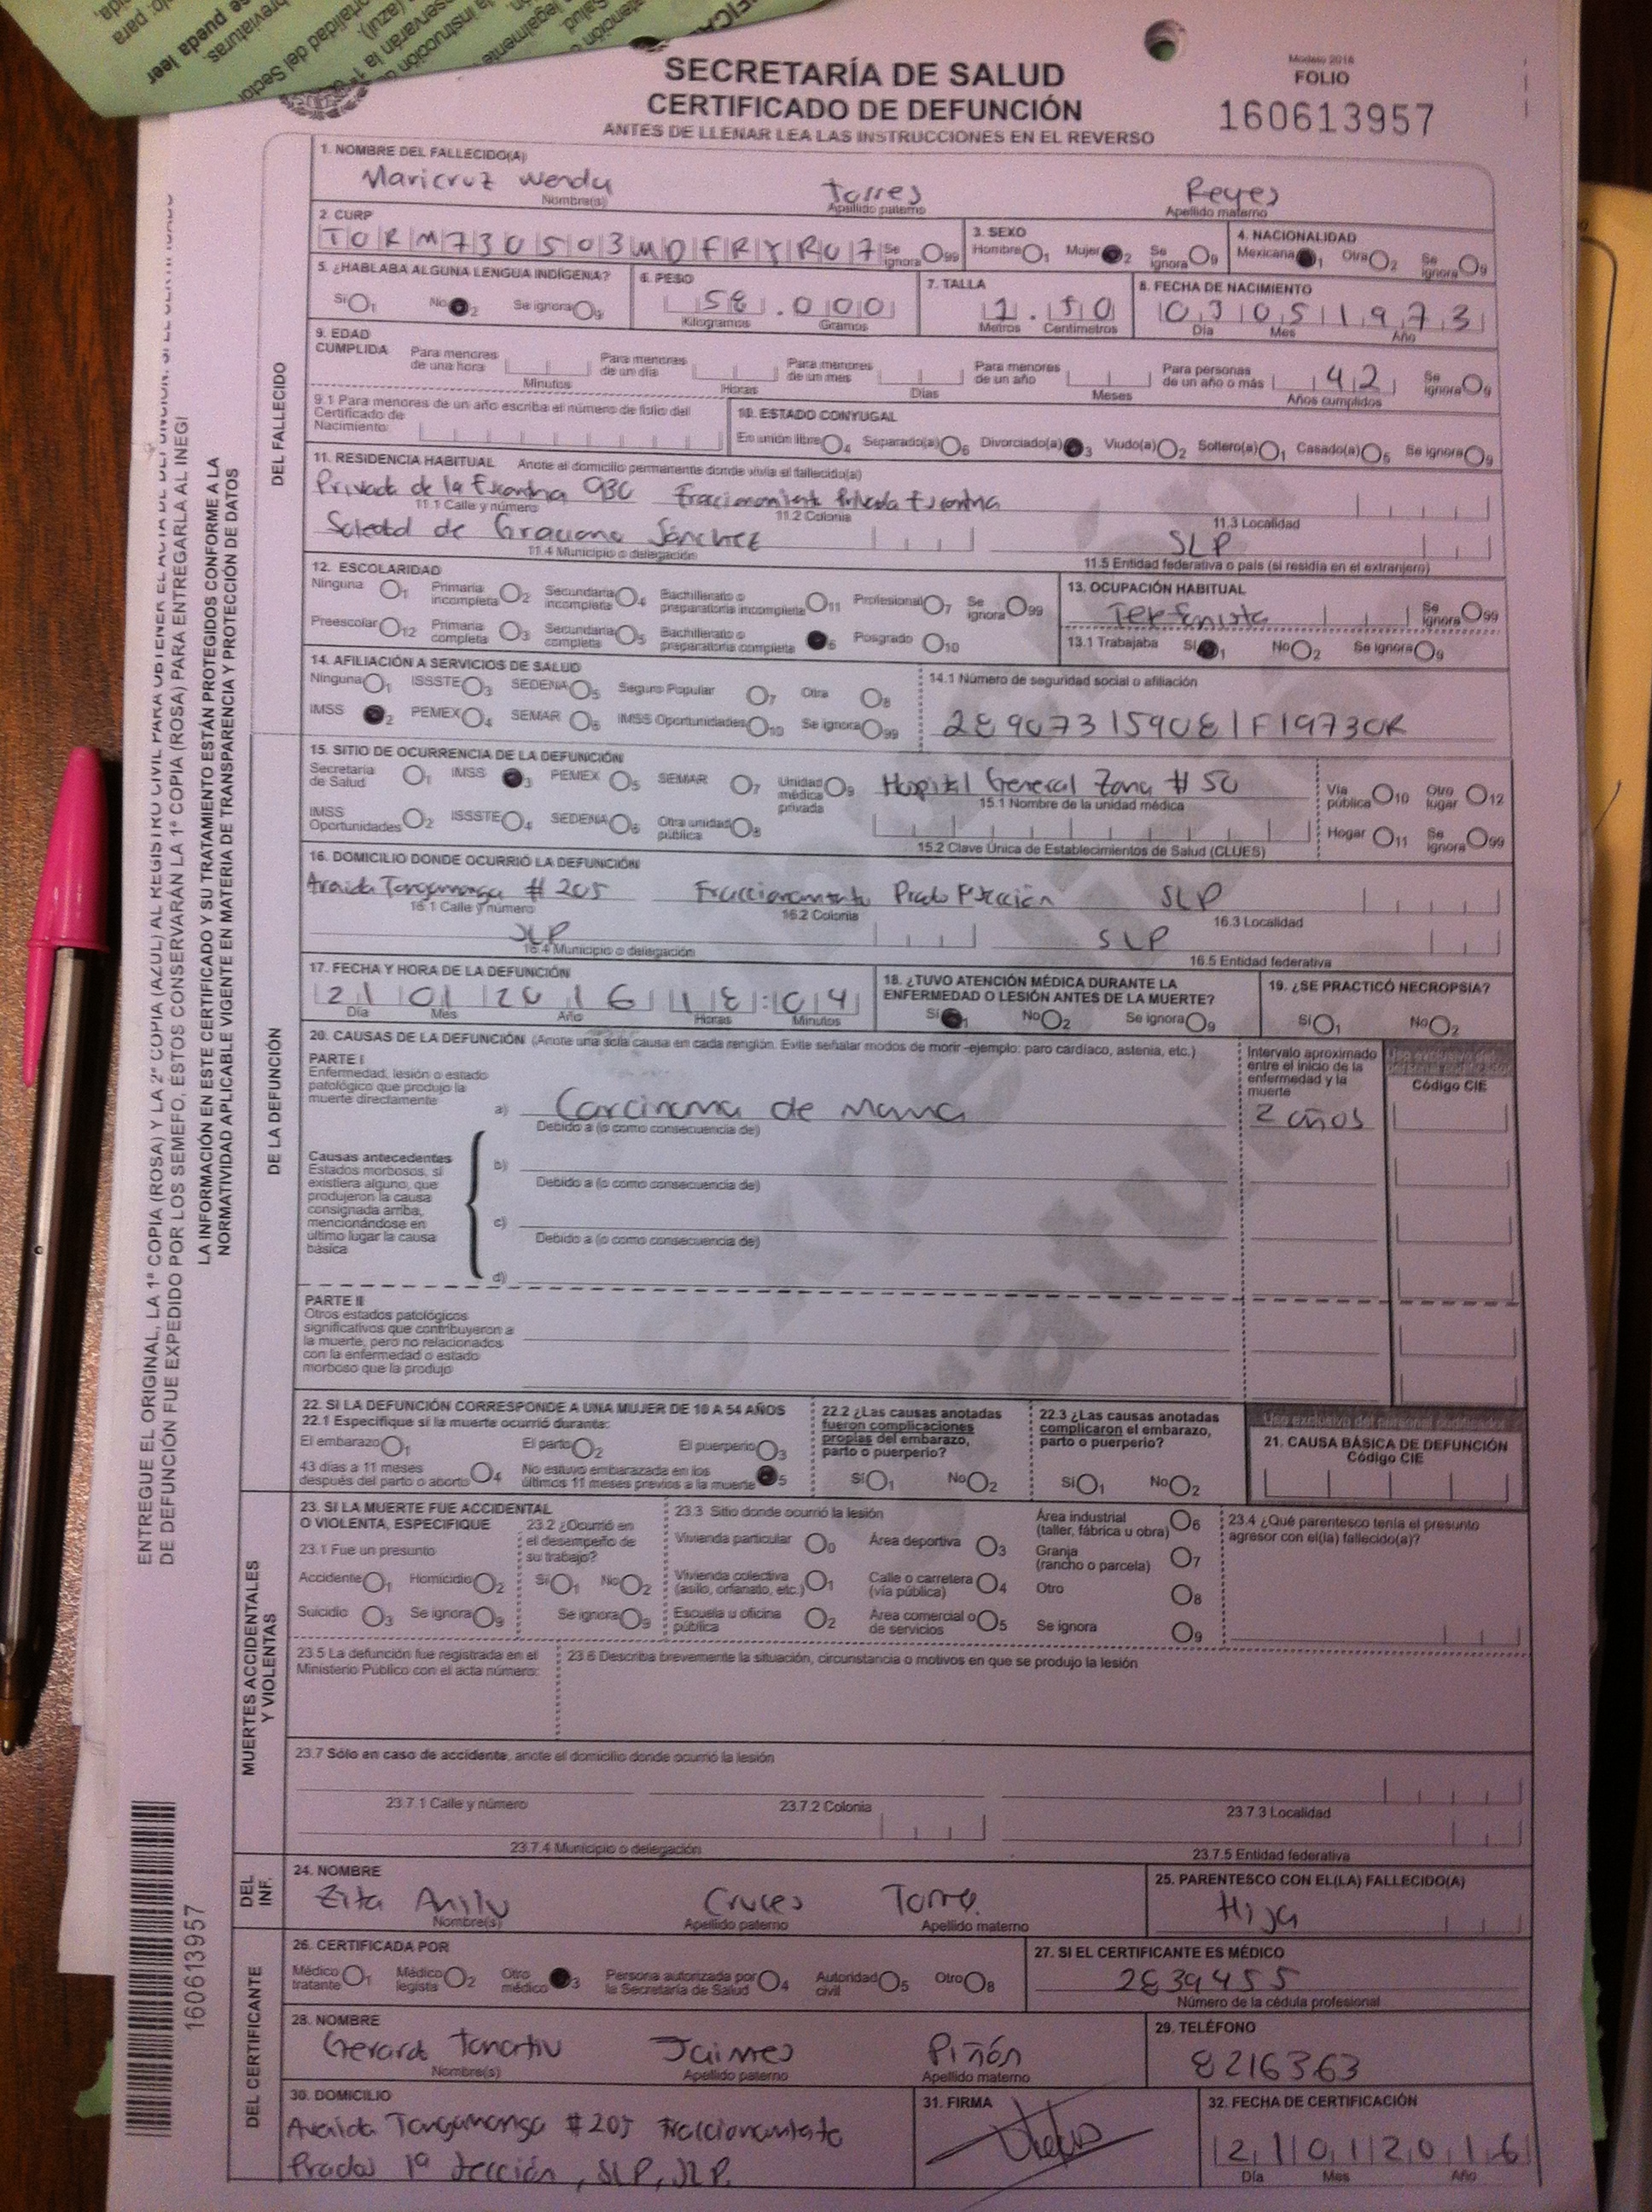 SECRETARÍA DE SALUD
CERTIFICADO DE DEFUNCIÓN
ANTES DE LLENAR LEA LAS INSTRUCCIONES EN EL REVERSO
Modelo 2016
FOLIO
160613957
1. NOMBRE DEL FALLECIDO(A)
Maricruz Wendy Torres Reyes
Nombre(s) Apellido paterno Apellido materno
2. CURP
TORM730503MDFRYR07 Se ignora 99
3. SEXO
Hombre 1 Mujer 2 Se ignora 9
4. NACIONALIDAD
Mexicana 1 Otra 2 Se ignora 9
5. ¿HABLABA ALGUNA LENGUA INDÍGENA?
Sí 1 No 2 Se ignora 9
6. PESO
58.000
Kilogramos Gramos
7. TALLA
1.50
Metros Centímetros
8. FECHA DE NACIMIENTO
03 05 1973
Día Mes Año
9. EDAD CUMPLIDA
Para menores de una hora Minutos
Para menores de un día Horas
Para menores de un mes Días
Para menores de un año Meses
Para personas de un año o más 42 Años cumplidos
Se ignora 9
9.1 Para menores de un año escriba el número de folio del Certificado de Nacimiento:
10. ESTADO CONYUGAL
En unión libre 4 Separado(a) 6 Divorciado(a) 3 Viudo(a) 2 Soltero(a) 1 Casado(a) 5 Se ignora 9
11. RESIDENCIA HABITUAL Anote el domicilio permanente donde vivía el fallecido(a)
Privada de la 930 Fraccionamiento Privada
11.1 Calle y número 11.2 Colonia 11.3 Localidad
Soledad de Graciano Sánchez SLP
11.4 Municipio o delegación 11.5 Entidad federativa o país (si residía en el extranjero)
12. ESCOLARIDAD
Ninguna 1 Primaria incompleta 2 Secundaria incompleta 4 Bachillerato o preparatoria incompleta 11 Profesional 7 Se ignora 99
Preescolar 12 Primaria completa 3 Secundaria completa 5 Bachillerato o preparatoria completa 6 Posgrado 10
13. OCUPACIÓN HABITUAL
Telefonista Se ignora 99
13.1 Trabajaba Sí 1 No 2 Se ignora 9
14. AFILIACIÓN A SERVICIOS DE SALUD
Ninguna 1 ISSSTE 3 SEDENA 5 Seguro Popular 7 Otra 8
IMSS 2 PEMEX 4 SEMAR 6 IMSS Oportunidades 10 Se ignora 99
14.1 Número de seguridad social o afiliación
15. SITIO DE OCURRENCIA DE LA DEFUNCIÓN
Secretaría de Salud 1 IMSS 3 PEMEX 5 SEMAR 7 Unidad médica privada 9
IMSS Oportunidades 2 ISSSTE 4 SEDENA 6 Otra unidad pública 8
Hospital General Zona # 50
15.1 Nombre de la unidad médica
15.2 Clave Única de Establecimientos de Salud (CLUES)
Vía pública 10 Otro lugar 12
Hogar 11 Se ignora 99
16. DOMICILIO DONDE OCURRIÓ LA DEFUNCIÓN
Tangamanga # 205 Fraccionamiento Prado SLP
16.1 Calle y número 16.2 Colonia 16.3 Localidad
SLP SLP
16.4 Municipio o delegación 16.5 Entidad federativa
17. FECHA Y HORA DE LA DEFUNCIÓN
21 01 2016 18:04
Día Mes Año Horas Minutos
18. ¿TUVO ATENCIÓN MÉDICA DURANTE LA ENFERMEDAD O LESIÓN ANTES DE LA MUERTE?
Sí 1 No 2 Se ignora 9
19. ¿SE PRACTICÓ NECROPSIA?
Sí 1 No 2
20. CAUSAS DE LA DEFUNCIÓN (Anote una sola causa en cada renglón. Evite señalar modos de morir -ejemplo: paro cardíaco, astenia, etc.)
Intervalo aproximado entre el inicio de la enfermedad y la muerte
Código CIE
PARTE I
Enfermedad, lesión o estado patológico que produjo la muerte directamente
a) Carcinoma de mama 2 años
Debido a (o como consecuencia de)
Causas antecedentes
Estados morbosos, si existiera alguno, que produjeron la causa consignada arriba, mencionándose en último lugar la causa básica
b)
Debido a (o como consecuencia de)
c)
Debido a (o como consecuencia de)
d)
PARTE II
Otros estados patológicos significativos que contribuyeron a la muerte, pero no relacionados con la enfermedad o estado morboso que la produjo
22. SI LA DEFUNCIÓN CORRESPONDE A UNA MUJER DE 10 A 54 AÑOS
22.1 Especifique si la muerte ocurrió durante:
El embarazo 1 El parto 2 El puerperio 3
43 días a 11 meses después del parto o aborto 4 No estuvo embarazada en los últimos 11 meses previos a la muerte 5
22.2 ¿Las causas anotadas fueron complicaciones propias del embarazo, parto o puerperio?
Sí 1 No 2
22.3 ¿Las causas anotadas complicaron el embarazo, parto o puerperio?
Sí 1 No 2
Uso exclusivo del personal codificador
21. CAUSA BÁSICA DE DEFUNCIÓN
Código CIE
23. SI LA MUERTE FUE ACCIDENTAL O VIOLENTA, ESPECIFIQUE
23.1 Fue un presunto
Accidente 1 Homicidio 2
Suicidio 3 Se ignora 9
23.2 ¿Ocurrió en el desempeño de su trabajo?
Sí 1 No 2
Se ignora 9
23.3 Sitio donde ocurrió la lesión
Vivienda particular 0 Área deportiva 3 Área industrial (taller, fábrica u obra) 6
Vivienda colectiva (asilo, orfanato, etc.) 1 Calle o carretera (vía pública) 4 Granja (rancho o parcela) 7
Escuela u oficina pública 2 Área comercial o de servicios 5 Otro 8
Se ignora 9
23.4 ¿Qué parentesco tenía el presunto agresor con el(la) fallecido(a)?
23.5 La defunción fue registrada en el Ministerio Público con el acta número:
23.6 Describa brevemente la situación, circunstancia o motivos en que se produjo la lesión
23.7 Sólo en caso de accidente, anote el domicilio donde ocurrió la lesión
23.7.1 Calle y número 23.7.2 Colonia 23.7.3 Localidad
23.7.4 Municipio o delegación 23.7.5 Entidad federativa
24. NOMBRE
Zita Cruces Torre
Nombre(s) Apellido paterno Apellido materno
25. PARENTESCO CON EL(LA) FALLECIDO(A)
Hija
26. CERTIFICADA POR
Médico tratante 1 Médico legista 2 Otro médico 3 Persona autorizada por la Secretaría de Salud 4 Autoridad civil 5 Otro 8
27. SI EL CERTIFICANTE ES MÉDICO
2839455
Número de la cédula profesional
28. NOMBRE
Jaimes Piñón
Nombre(s) Apellido paterno Apellido materno
29. TELÉFONO
8216363
30. DOMICILIO
Tangamanga #205 Fraccionamiento
Prados 1ª Sección, SLP, SLP.
31. FIRMA
32. FECHA DE CERTIFICACIÓN
21 01 2016
Día Mes Año
DEL FALLECIDO
DE LA DEFUNCIÓN
MUERTES ACCIDENTALES Y VIOLENTAS
DEL INF.
DEL CERTIFICANTE
LA INFORMACIÓN EN ESTE CERTIFICADO Y SU TRATAMIENTO ESTÁN PROTEGIDOS CONFORME A LA
NORMATIVIDAD APLICABLE VIGENTE EN MATERIA DE TRANSPARENCIA Y PROTECCIÓN DE DATOS
ENTREGUE EL ORIGINAL, LA 1ª COPIA (ROSA) Y LA 2ª COPIA (AZUL) AL REGISTRO CIVIL PARA OBTENER EL ACTA DE DEFUNCIÓN. SI EL CERTIFICADO
DE DEFUNCIÓN FUE EXPEDIDO POR LOS SEMEFO, ÉSTOS CONSERVARÁN LA 1ª COPIA (ROSA) PARA ENTREGARLA AL INEGI
160613957